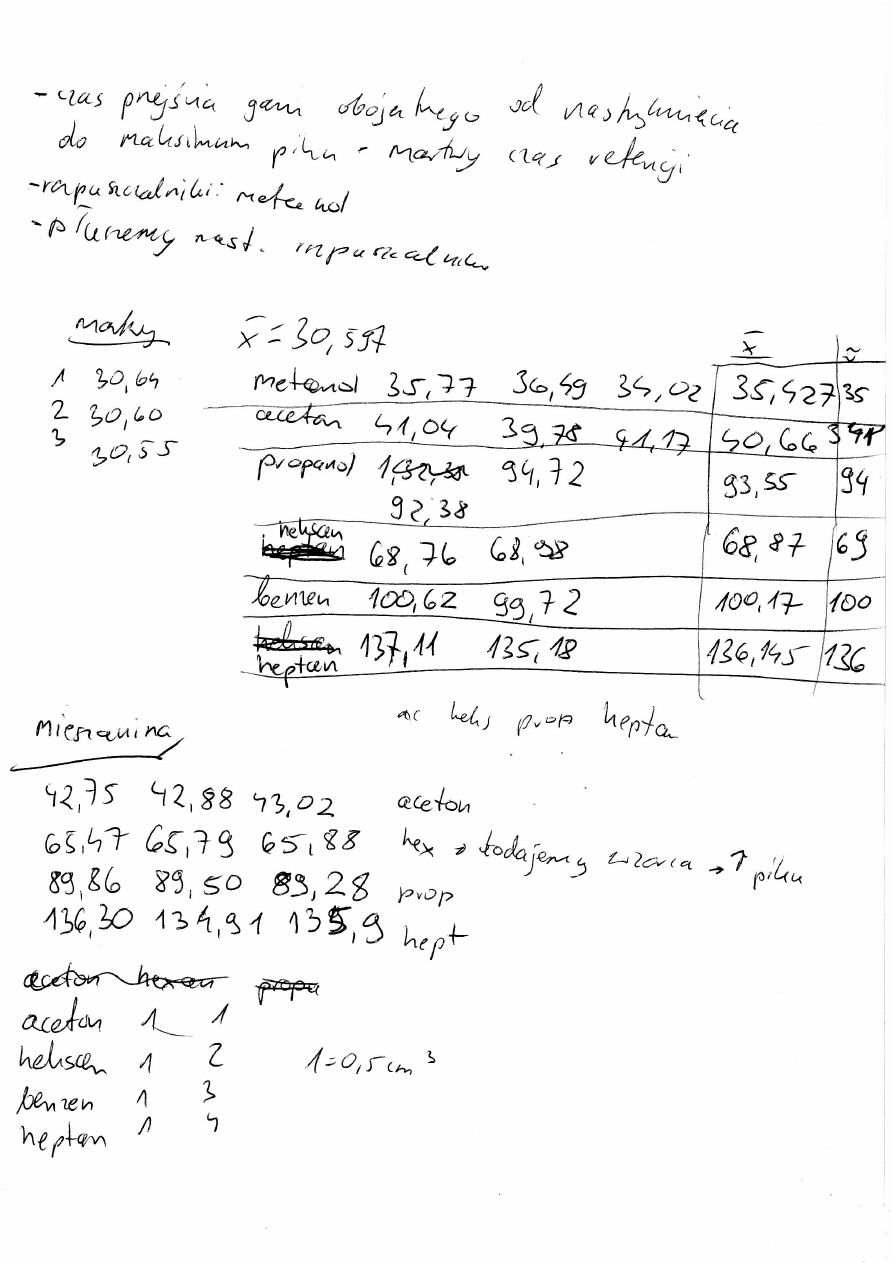 - czas przejścia gazu obojętnego od nastrzyknięcia
do maksimum piku - martwy czas retencji
- rozpuszczalniki: metanol
- płuczemy nast. rozpuszczalnikiem
x̄ = 30,597
1 30,64
2 30,60
3 30,55
x̄
metanol 35,77 36,49 34,02 35,427 35
aceton 41,04 39,78 41,17 40,66 41
propanol 94,72 93,55 94
92,38
heksan 68,76 68,98 68,87 69
benzen 100,62 99,72 100,17 100
heptan 137,11 135,18 136,145 136
ac heks prop heptan
Mieszanina
42,75 42,88 43,02 aceton
65,47 65,79 65,88 hex → dodajemy wzorca → ↑ piku
89,86 89,50 89,28 prop
136,30 134,91 135,9 hept
aceton hexan propa
aceton 1 1
heksan 1 2 1=0,5 cm³
benzen 1 3
heptan 1 4